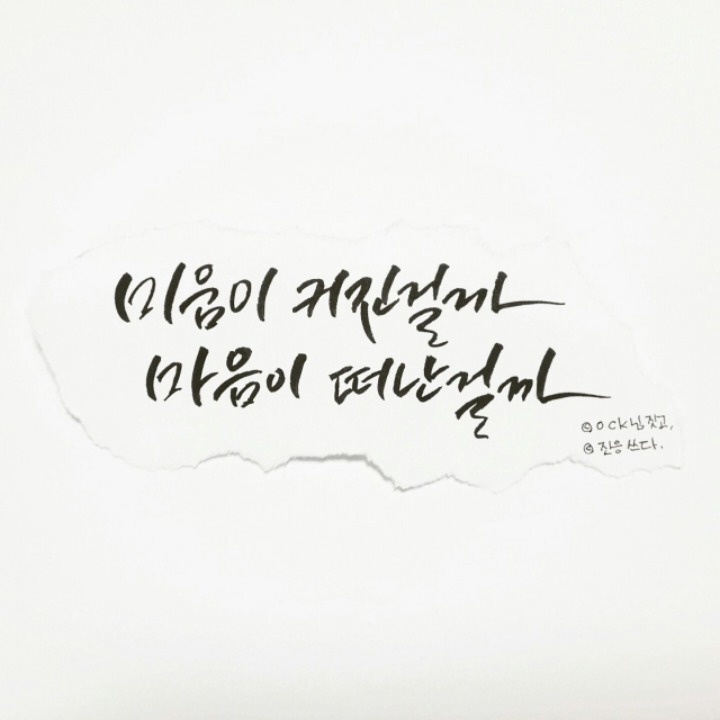 미움이 커진걸까
마음이 떠난걸까
©ock님 짓고,
©진응 쓰다.